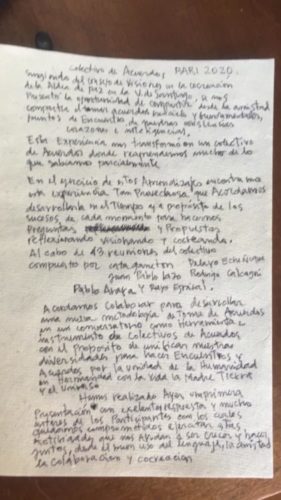 Colectivo de Acuerdos, PARI 2020.
Surgiendo del Consejo de Visiones en la cocreación
de la Aldea de PAZ en la V. de Santiago, se nos
Presentó la oportunidad de compartir desde la amistad
puntos de Encuentro de nuestras consciencias
corazones e inteligencias,
Esta Experiencia nos transformó en un colectivo
de Acuerdos donde reaprendimos mucho de lo
que sabíamos parcialmente
En el ejercicio de estos Aprendizajes encontramos
esta experiencia Tan que Acordamos
desarrollarla en el Tiempo y a propósito de los
sucesos de cada momento para hacernos
Preguntas, y Propuestas
reflexionando visionando y cocreando.
Al cabo de 43 reuniones del colectivo
compuesto por Pelayo Echeñique
Juan Pablo Lazo Rodrigo Calcagni
Pablo Araya y Rayo Espiral.
Acordamos Colaborar para desarrollar
una nueva metodología de Toma de Acuerdos
en un conversatorio como herramienta e
instrumento de Colectivos de Acuerdos
con el propósito de unificar nuestras
diversidades para hacer Encuentros y
Acuerdos por la unidad de la Humanidad
en Hermandad con la vida la Madre Tierra
y el universo
Hemos realizado Ayer una primera
Presentación con excelente respuesta y mucho
interes de los Participantes con los cuales
quedamos comprometidos ejercitar otras
Actividades que nos Ayudan a ser crecer y hacer
juntos, desde el buen uso del lenguaje, la amistad
la Colaboración y cocreación